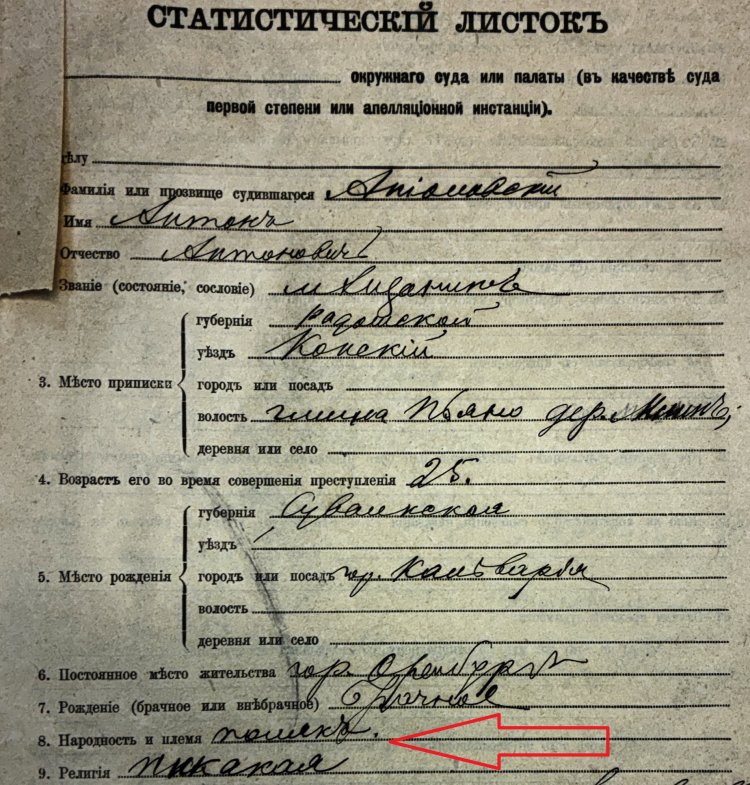 СТАТИСТИЧЕСКІЙ ЛИСТОКЪ
окружнаго суда или палаты (въ качествѣ суда
первой степени или апелляціонной инстанціи).
ѣлу
Фамилія или прозвище судившагося
Имя Антонъ
Отчество Антоновичъ
Званіе (состояніе, сословіе)
губернія Радомской
уѣздъ Конскій
3. Мѣсто приписки
городъ или посадъ
волость гмина дер.
деревня или село
4. Возрастъ его во время совершенія преступленія 25.
губернія Сувалкская
уѣздъ
5. Мѣсто рожденія
городъ или посадъ гор. Кальварія
волость
деревня или село
6. Постоянное мѣсто жительства гор. Оренбургъ
7. Рожденіе (брачное или внѣбрачное) брачное
8. Народность и племя полякъ.
9. Религія никакая